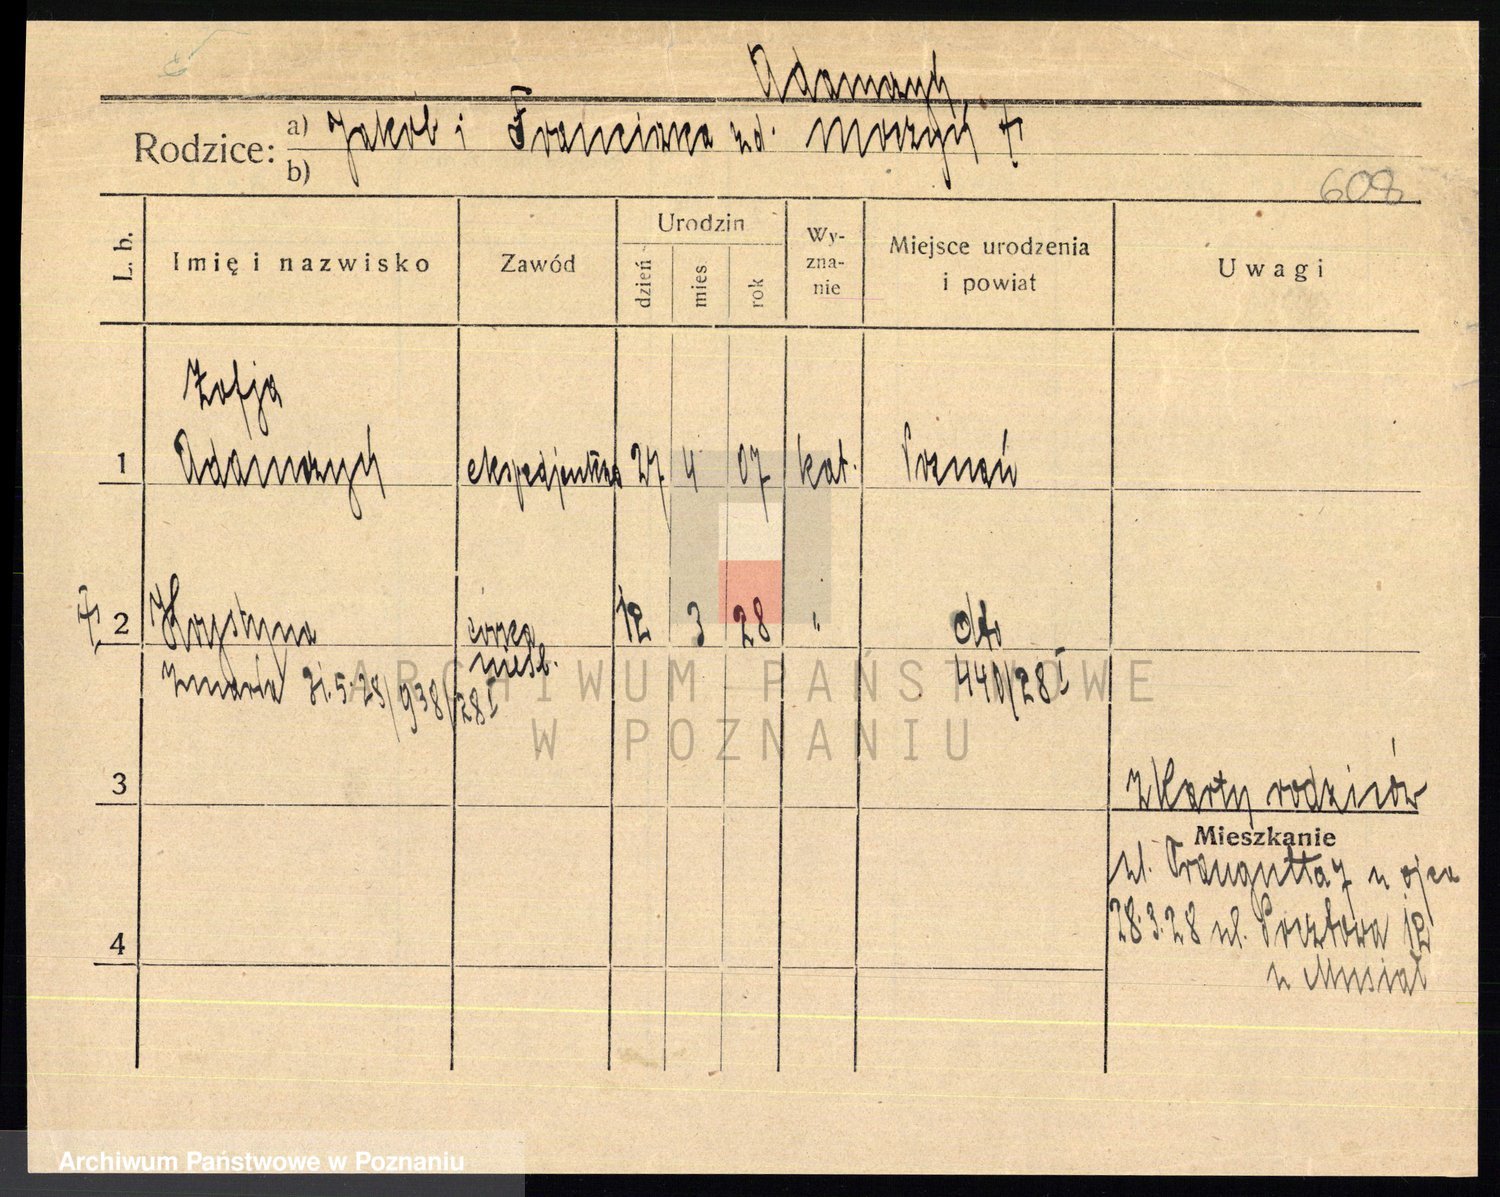 Adamczyk
Rodzice: a) Jakób i Franciszka zd. †
b)
608
L. b.
Imię i nazwisko
Zawód
Urodzin
dzień
mies
rok
Wy-
zna-
nie
Miejsce urodzenia
i powiat
Uwagi
Zofja
1 Adamczyk ekspedjentka 27 4 07 kat. Poznań
† 2 Krystyna córka 12 3 28 " dto
nieśl. 440/28 I
zmarła 31.5.28/938/28 I
3
z Karty rodziców
Mieszkanie
ul. Traugutta 7 u ojca
28.3.28 ul. Pocztowa 12
u Musiał
4
ARCHIWUM PAŃSTWOWE
W POZNANIU
Archiwum Państwowe w Poznaniu